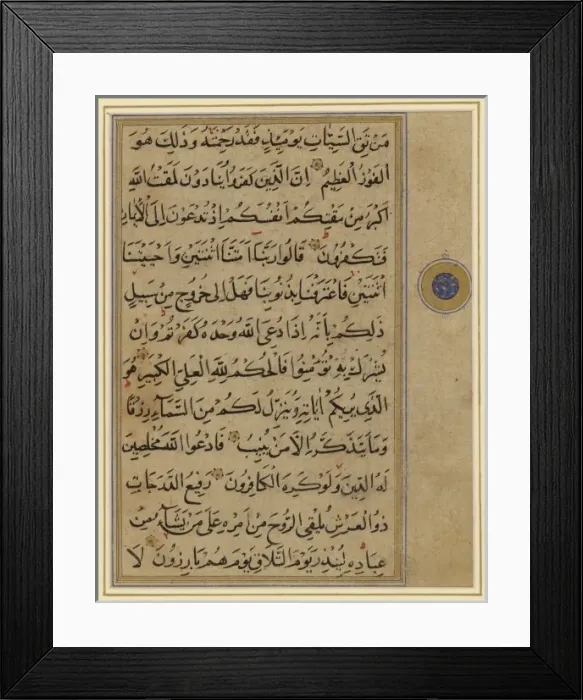 مَنْ تَقِ السَّيِّئَاتِ يَوْمَئِذٍ فَقَدْ رَحِمْتَهُ وَذَلِكَ هُوَ
الْفَوْزُ الْعَظِيمُ إِنَّ الَّذِينَ كَفَرُوا يُنَادَوْنَ لَمَقْتُ اللَّهِ
أَكْبَرُ مِنْ مَقْتِكُمْ أَنْفُسَكُمْ إِذْ تُدْعَوْنَ إِلَى الْإِيمَانِ
فَتَكْفُرُونَ قَالُوا رَبَّنَا أَمَتَّنَا اثْنَتَيْنِ وَأَحْيَيْتَنَا
اثْنَتَيْنِ فَاعْتَرَفْنَا بِذُنُوبِنَا فَهَلْ إِلَى خُرُوجٍ مِنْ سَبِيلٍ
ذَلِكُمْ بِأَنَّهُ إِذَا دُعِيَ اللَّهُ وَحْدَهُ كَفَرْتُمْ وَإِنْ
يُشْرَكْ بِهِ تُؤْمِنُوا فَالْحُكْمُ لِلَّهِ الْعَلِيِّ الْكَبِيرِ هُوَ
الَّذِي يُرِيكُمْ آيَاتِهِ وَيُنَزِّلُ لَكُمْ مِنَ السَّمَاءِ رِزْقًا
وَمَا يَتَذَكَّرُ إِلَّا مَنْ يُنِيبُ فَادْعُوا اللَّهَ مُخْلِصِينَ
لَهُ الدِّينَ وَلَوْ كَرِهَ الْكَافِرُونَ رَفِيعُ الدَّرَجَاتِ
ذُو الْعَرْشِ يُلْقِي الرُّوحَ مِنْ أَمْرِهِ عَلَى مَنْ يَشَاءُ مِنْ
عِبَادِهِ لِيُنْذِرَ يَوْمَ التَّلَاقِ يَوْمَ هُمْ بَارِزُونَ لَا